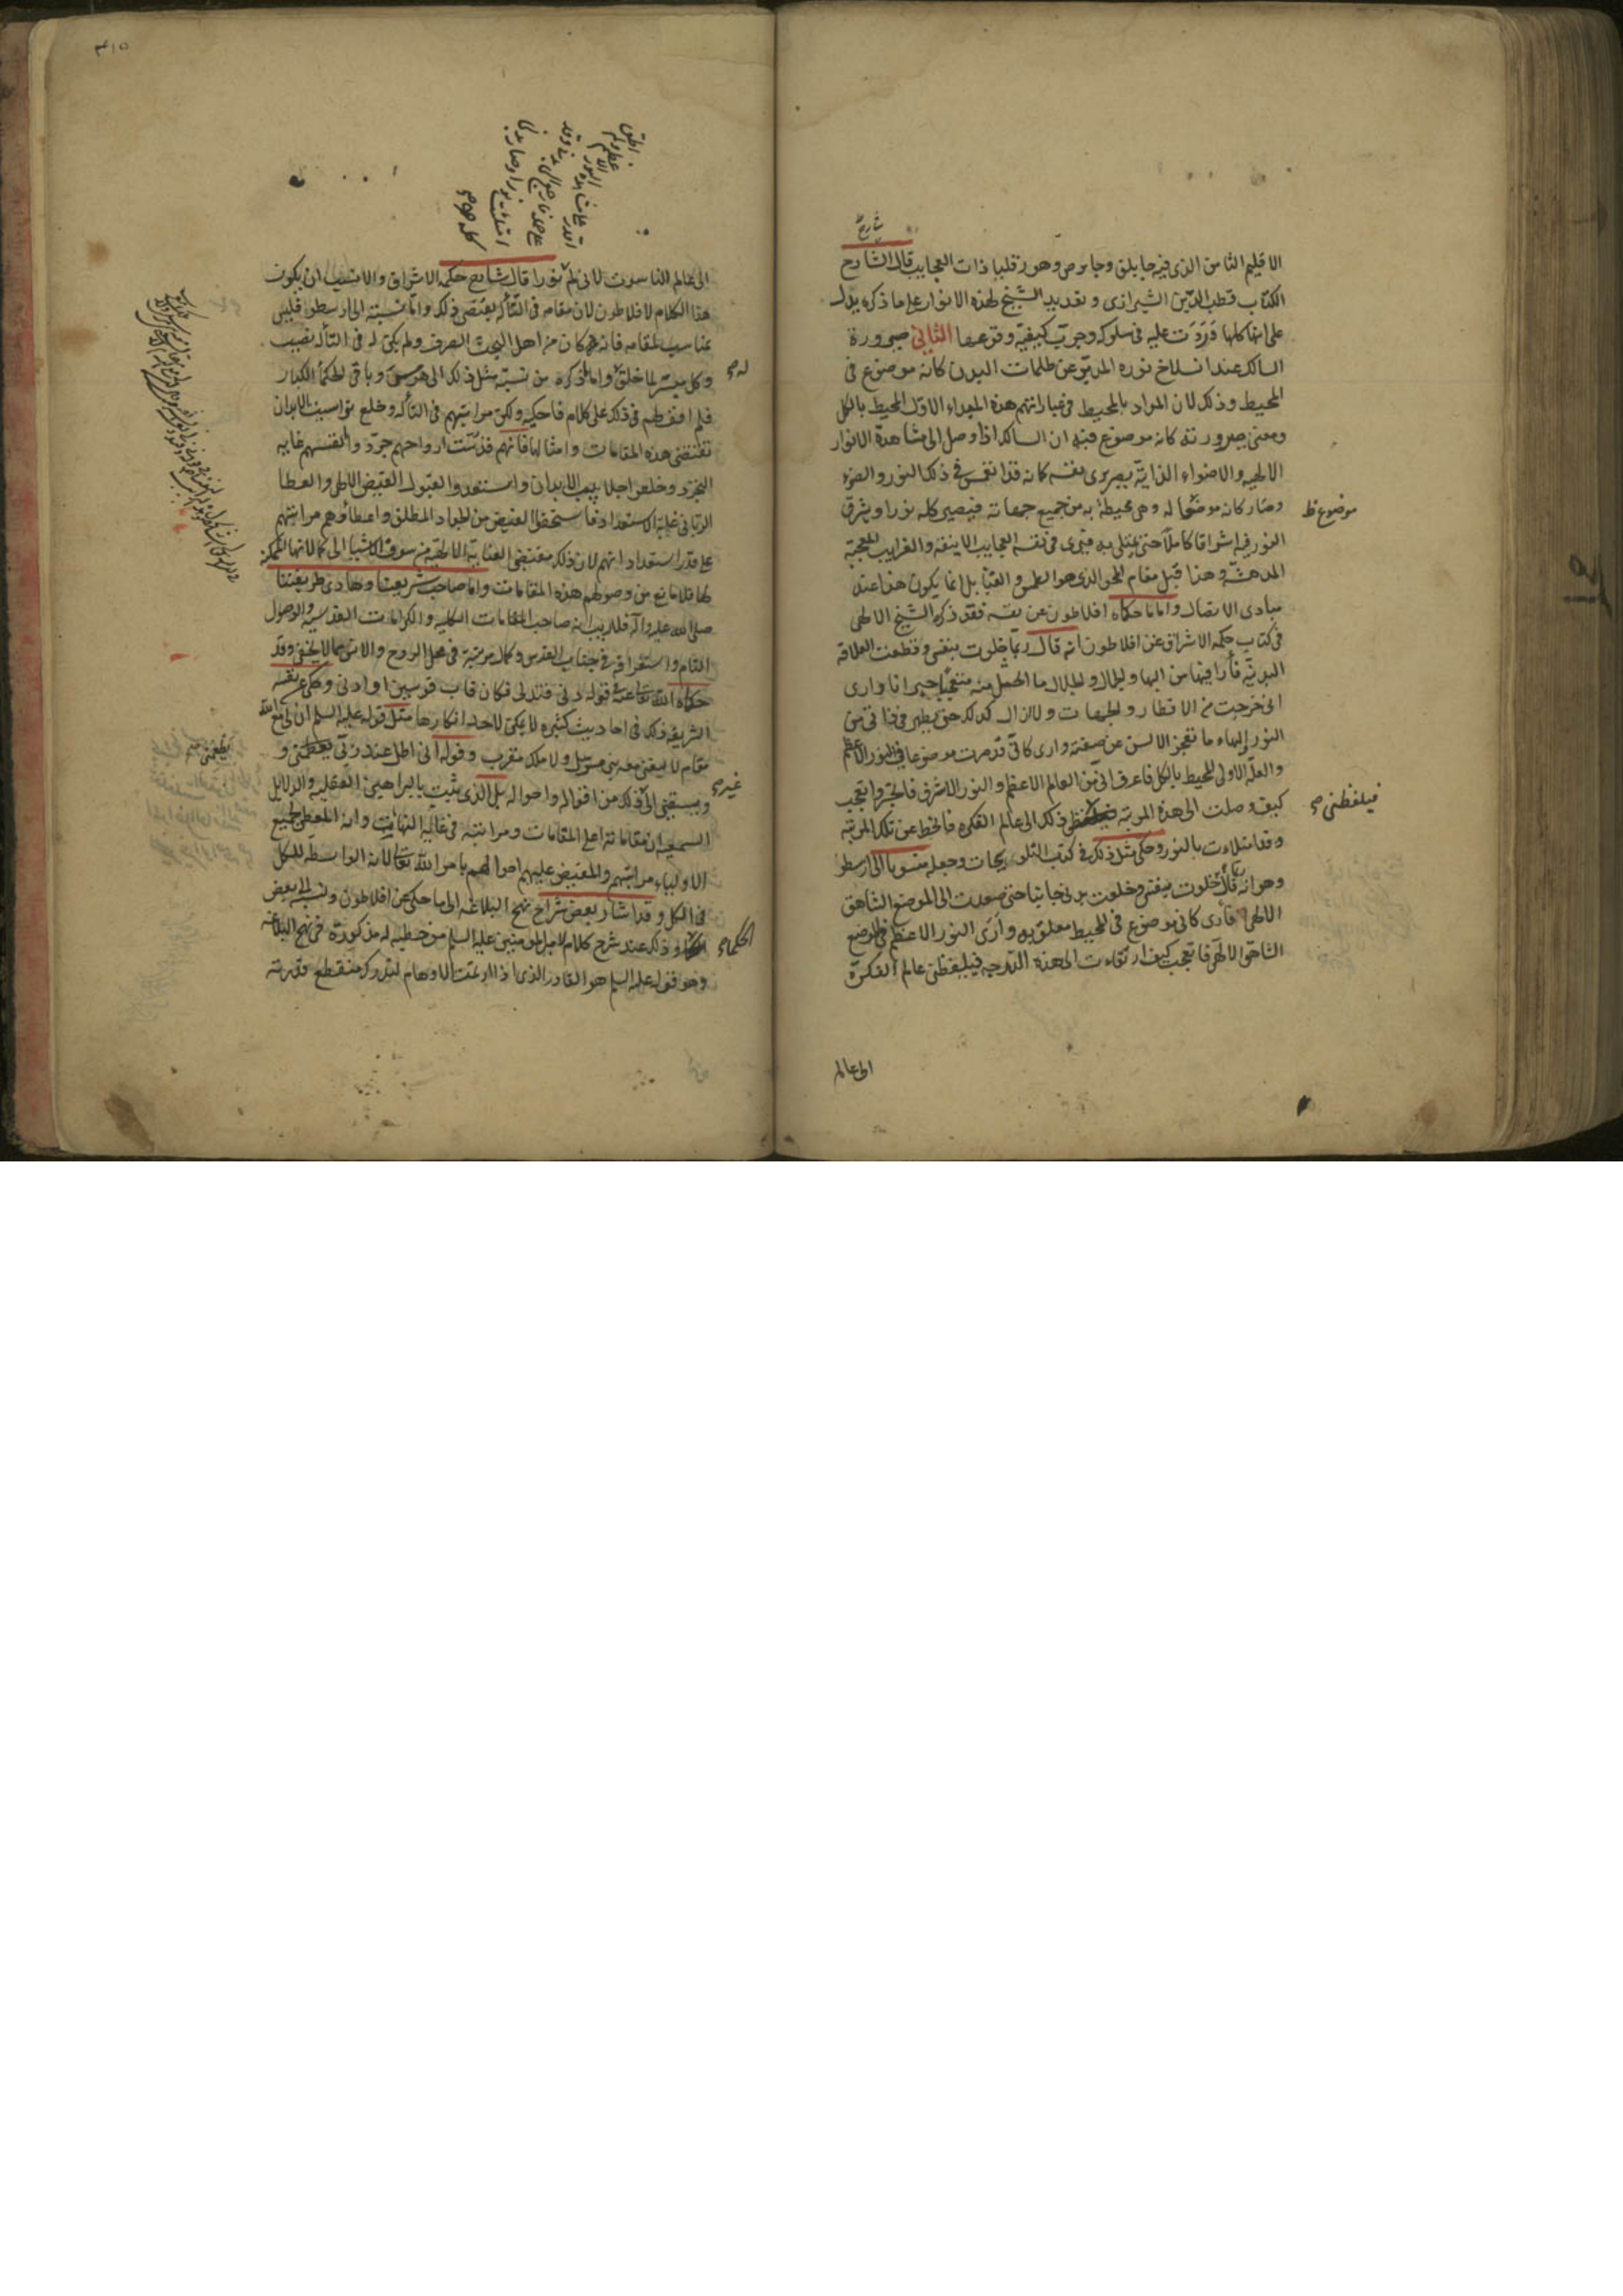 الاقليم الثامن الذى فيه جابلق وجابرص وهورقليا ذات العجايب قال الشارح
الكتاب قطب الدين الشيرازى و تقديد الشيخ لهذه الانوار على ما ذكره يدل
على انها كلها وردت عليه فى سلوكه وجرب كيفية وقوعها الثانى صيرورة
السالك عند انسلاخ نوره المدبر عن ظلمات البدن كانه موضوع فى
المحيط وذلك لان المراد بالمحيط فى عباراتهم هذه المبداء الاول المحيط بالكل
ومعنى صيرورته كانه موضوع فيه ان السالك اذا وصل الى مشاهدة الانوار
الالهيه والاضواء الذاتية يصير يرى نفسه كانه قد انغمس فى ذلك النور والضوء
وصار كانه موضعا له وهى محيطة به من جميع جهاته فيصير كله نورا ويشرق
موضوع ظ
النور فيه اشراقا كاملا حتى يمتلى به فيرى فى نفسه العجايب الانيقه والغرايب المعجبة
المدهشة وهذا قبل مقام المحو الذى هو الطمس والفنا بل انما يكون هذا عند
مبادى الاتصال واما ما حكاه افلاطون عن نفسه فقد ذكره الشيخ الالهى
فى كتاب حكمه الاشراق عن افلاطون انه قال ربما خلوت بنفسى وقطعت العلاقة
البدنية فأرا فيها من البها والجمال والجلال ما احصل منه متعجبا حيرانا وارى
انى خرجت من الاقطار والجهات ولا ازال كذلك حتى يظهر فى ذاتى من
النور والبهاء ما تعجز الالسن عن صفته وارى كانى قد صرت موضوعا فى النور الاعظم
والعلة الاولى المحيط بالكل فاعرف انى من العالم الاعظم والنور الاشرق فاتحير واتعجب
كيف وصلت الى هذه المرتبة ذلك الى عالم الفكره فانحط عن تلك المرتبة
فيلفظنى صح
وقد امتلاءت بالنور وحكى مثل ذلك فى كتب التلويحات وجعله منسوبا الى ارسطو
وهو انه قال ربما خلوت بنفسى وخلعت بدنى جانبا حتى صعدت الى الموضع الشاهق
الالهى فأرى كانى موضوع فى المحيط معلق به وأرى النور الاعظم فى الموضع
الشاهق الالهى فاتعجب كيف ارتقاءت الى هذه الدرجه فيلفظنى عالم الفكرة
الى عالم
الى عالم الناسوت لانى لم نورا قال شارح حكمه الاشراق والانسب ان يكون
هذا الكلام لافلاطون لان مقامه فى التأله يقتضى ذلك واما نسبته الى ارسطو فليس
بمناسب لمقامه فانه كان من اهل البحث الصرف ولم يكن له فى التأله نصيب
وكل ميسر لما خلق واما ذكره من نسبة مثل ذلك الى هرمس وباقى الحكمأ الكبار
له صح
فلم اقف لهم فى ذلك على كلام فاحكيه ولكن مراتبهم فى التأله وخلع نواسيت الابدان
تقتضى هذه المقامات وامثالها فانهم قدست ارواحهم جرد وا انفسهم غايه
التجرد وخلعوا جلابيب الابدان واستعدوا لقبول الفيض الالهى والعطا
الربانى غاية الاستعداد فاستحقوا الفيض من الجواد المطلق واعطائهم مراتبهم
على قدر استعداداتهم لان ذلك مقتضى العناية الالهية من سوق الاشيا الى كمالاتها الممكنه
لها فلا مانع من وصولهم هذه المقامات واما صاحب شريعتنا وهادى طريقتنا
صلى الله عليه وآله فلا ريب انه صاحب المقامات الكليه والكرامات القدسيه والوصول
التام واستغراقه فى جناب القدس وكمال مرتبته فى محل الروح والانس مما لا يخفى وقد
حكاه الله تعالى عنه فى قوله دنى فتدلى فكان قاب قوسين او ادنى وحكى عن نفسه
الشريفه ذلك فى احاديث كثيره لا يمكن لاحد انكارها مثل قوله عليه السلم ان لى مع الله
مقام لا يسعنى معه نبى مرسل ولا ملك مقرب وقوله انى اظل عند ربى يطعمنى و
يطعمنى صح
ويسقينى الى ذلك من اقواله واحواله بل الذى يثبت بالبراهين العقليه والدلايل
غيره صح
السمعيه ان مقاماته اعلى المقامات ومراتبه فى غاية النهايت وانه المعطى لجميع
الاولياء مراتبهم والمفيض عليهم احوالهم بامر الله تعالى لانه الواسطه للكل
فى الكل وقد اشار بعض شراح نهج البلاغه الى ما حكى عن افلاطون ونسبه الى بعض
الحكماء وذلك عند شرح كلام لامير المومنين عليه السلم من خطبه له مذكورة فى نهج البلاغه
وهو قوله عليه السلم هو القادر الذى اذا ارتمت الاوهام لتدرك منقطع قدرته